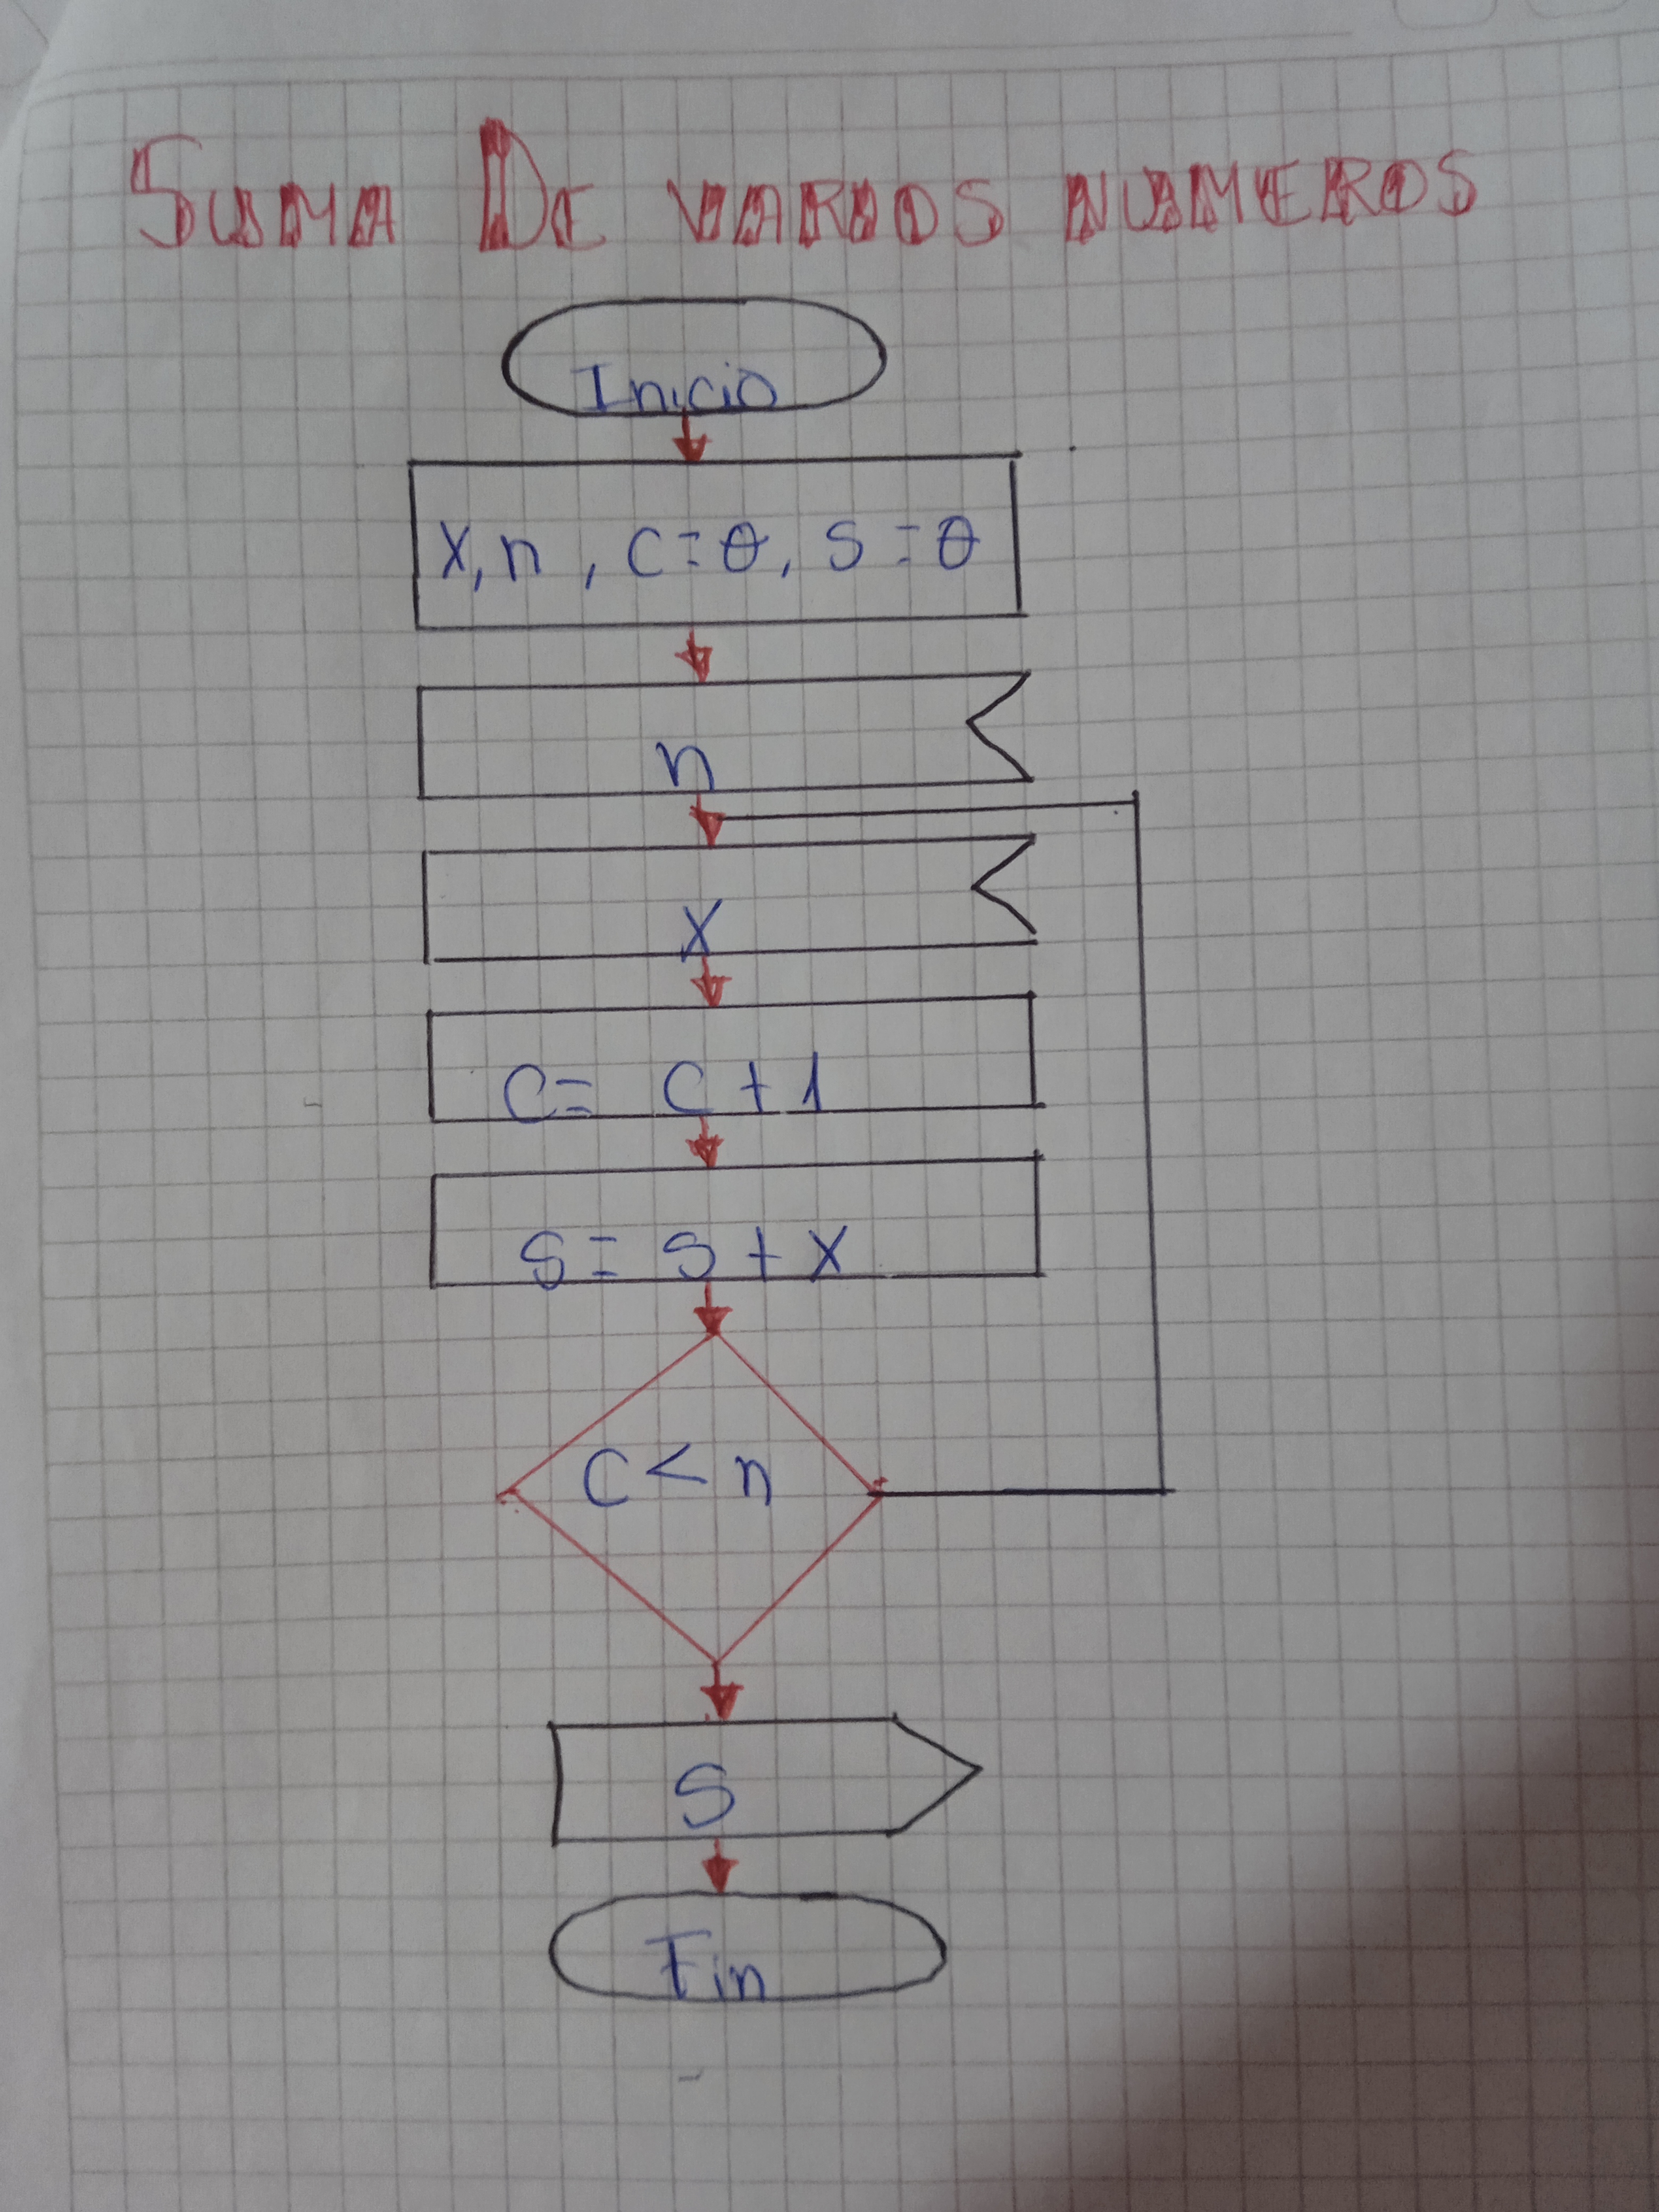 SUMA DE VARIOS NUMEROS
Inicio
X, n , C = 0, S = 0
n
X
C = C + 1
S = S + X
C < n
S
Fin